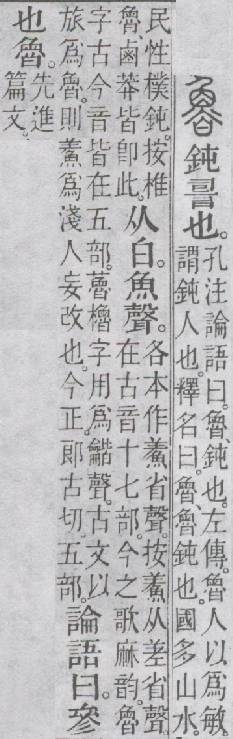 魯 鈍䛐也。
孔注論語曰。魯、鈍也。左傳。魯人以爲敏。
謂鈍人也。釋名曰。魯、魯鈍也。國多山水。
民性樸鈍。按椎
魯、鹵莽皆卽此。
从白。魚聲。
各本作鮺省聲。按鮺从差省聲。
在古音十七部。今之歌麻韵。魯
字古今音皆在五部。櫓字用爲龤聲。古文以
旅爲魯。則鮺爲淺人妄改也。今正。郎古切。五部。
論語曰。參
也魯。
先進
篇文。